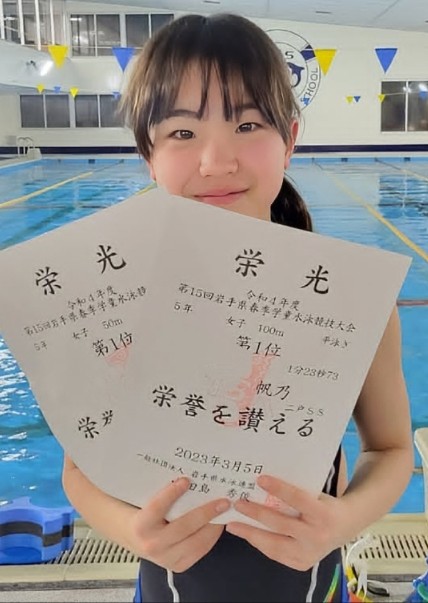 栄光
令和4年度
第15回岩手県春季学童水泳競
5年 女子 50m
第1位
栄誉
栄光
令和4年度
第15回岩手県春季学童水泳競技大会
5年 女子 100m 平泳ぎ
第1位
1分23秒73
帆乃
二戸SS
栄誉を讃える
2023年3月5日
一般社団法人 岩手県水泳連盟
田島 秀俊
SCHOOL